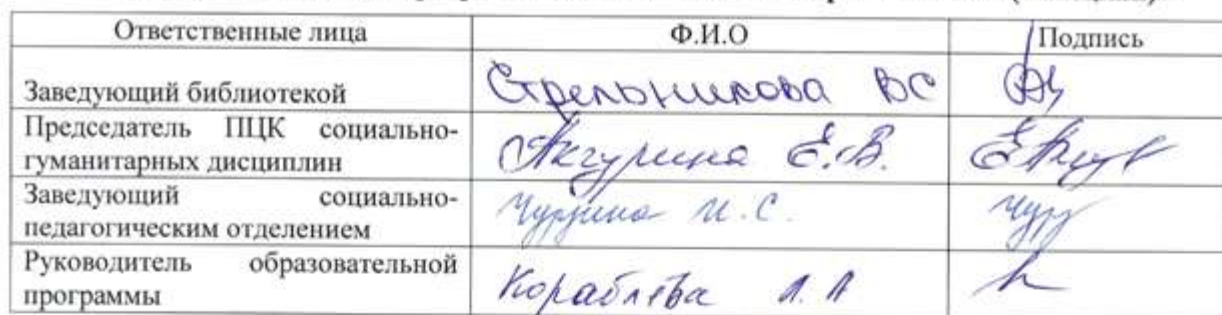 Ответственные лица Ф.И.О Подпись
Заведующий библиотекой Стрельникова ВС
Председатель ПЦК социально-
гуманитарных дисциплин Акчурина Е.В.
Заведующий социально-
педагогическим отделением И.С.
Руководитель образовательной
программы Кораблёва Л.Л